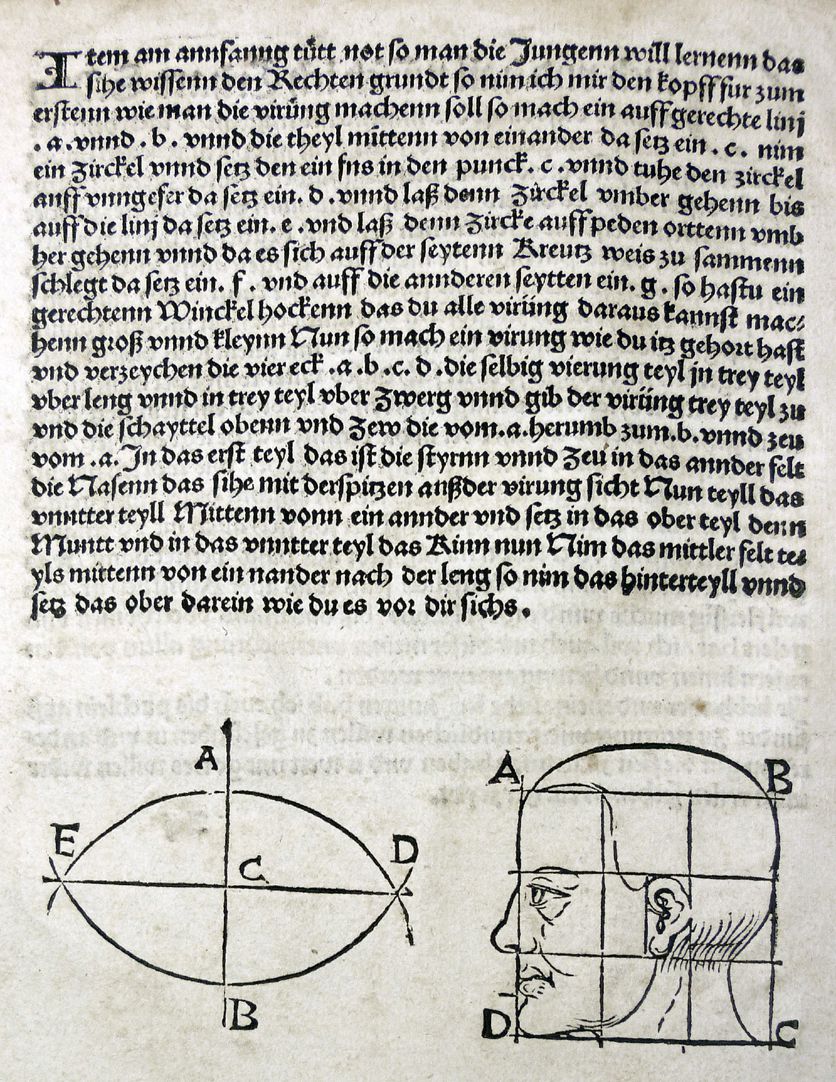 Item am annfanng tůtt not so man die Jungenn will lernenn das
sihe wissenn den Rechten grundt so nim ich mir den kopff fur zum
erstenn wie man die virůng machenn soll so mach ein auffgerechte linj
. a . vnnd . b . vnnd die theyl mittenn von einander da setz ein . c . nim
ein Zirckel vnnd setz den ein fns in den punck . c . vnnd tuhe den zirckel
auff vnngefer da setz ein . d . vnnd laß denn Zirckel vmber gehenn bis
auff die linj da setz ein . e . vnd laß denn Zircke auff peden orttenn vmb
her gehenn vnnd da es sich auff der seytenn Kreutz weis zu sammenn
schlegt da setz ein . f . vnd auff die annderen seytten ein . g . so hastu ein
gerechtenn Winckel hockenn das du alle virüng daraus kannst mac⸗
henn groß vnnd kleynn Nun so mach ein virung wie du itz gehort hast
vnd verzeychen die vier eck . a . b . c . d . die selbig vierung teyl jn trey teyl
vber leng vnnd in trey teyl vber Zwerg vnnd gib der virüng trey teyl zu
vnd die schayttel obenn vnd Zew die vom . a . herumb zum . b . vnnd zeu
vom . a . In das erst teyl das ist die styrnn vnnd Zeu in das annder felt
die Nasenn das sihe mit der spitzen außder virung sicht Nun teyll das
vnntter teyll Mittenn vonn ein annder vnd setz in das ober teyl denn
Muntt vnd in das vnntter teyl das Kinn nun Nim das mittler felt te⸗
yls mittenn von ein nander nach der leng so nim das hinterteyll vnnd
setz das ober darein wie du es vor dir sichs .
A
E
C
D
B
A
B
D
C